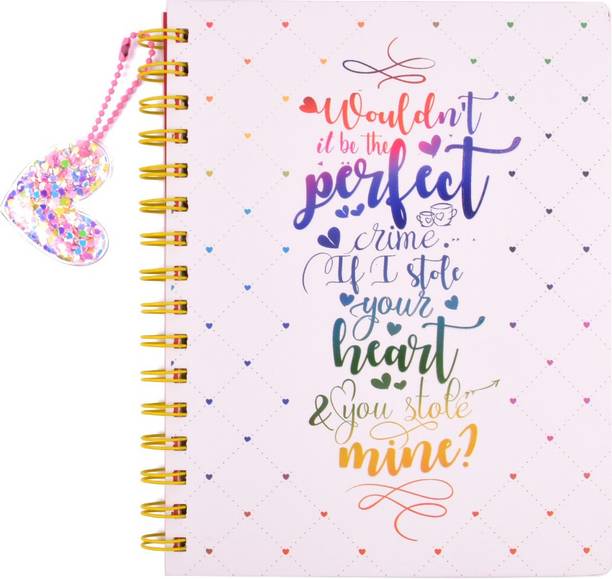 Wouldn't
it be the
perfect
crime..
If I stole
your
heart
& you stole
mine?